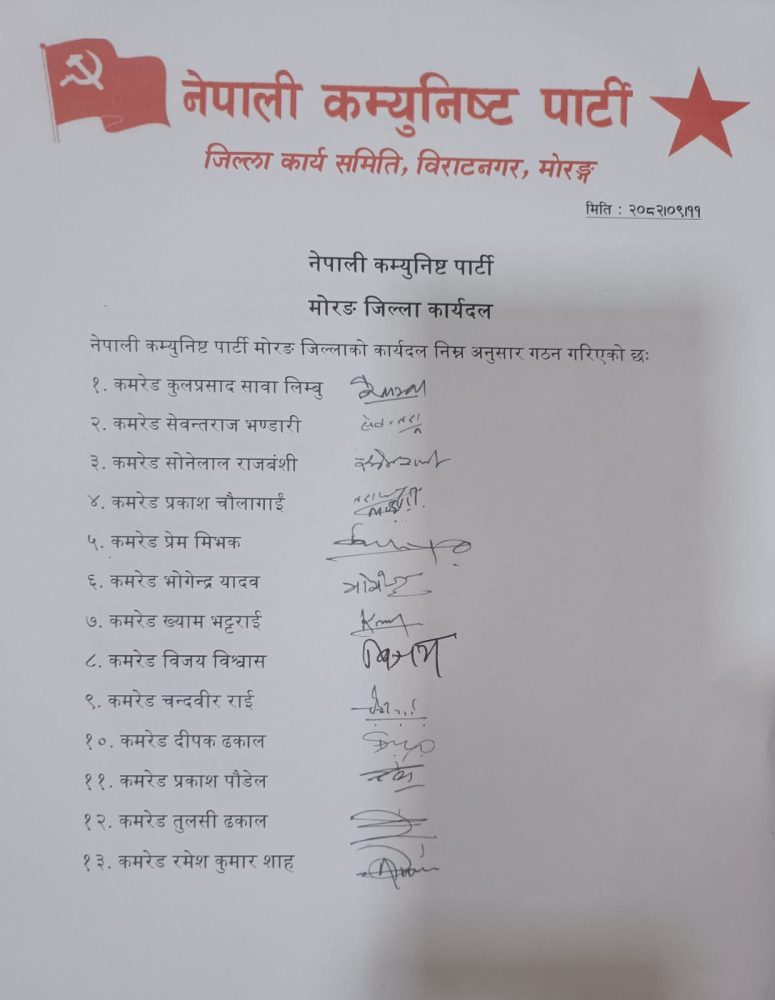 नेपाली कम्युनिष्ट पार्टी
जिल्ला कार्य समिति, विराटनगर, मोरङ्ग
मिति : २०८२।०९।११
नेपाली कम्युनिष्ट पार्टी
मोरङ जिल्ला कार्यदल
नेपाली कम्युनिष्ट पार्टी मोरङ जिल्लाको कार्यदल निम्न अनुसार गठन गरिएको छः
१. कमरेड कुलप्रसाद सावा लिम्बु
२. कमरेड सेवन्तराज भण्डारी
३. कमरेड सोनेलाल राजबंशी
४. कमरेड प्रकाश चौलागाईं
५. कमरेड प्रेम मिभक
६. कमरेड भोगेन्द्र यादव
७. कमरेड ख्याम भट्टराई
८. कमरेड विजय विश्वास
९. कमरेड चन्दवीर राई
१०. कमरेड दीपक ढकाल
११. कमरेड प्रकाश पौडेल
१२. कमरेड तुलसी ढकाल
१३. कमरेड रमेश कुमार शाह